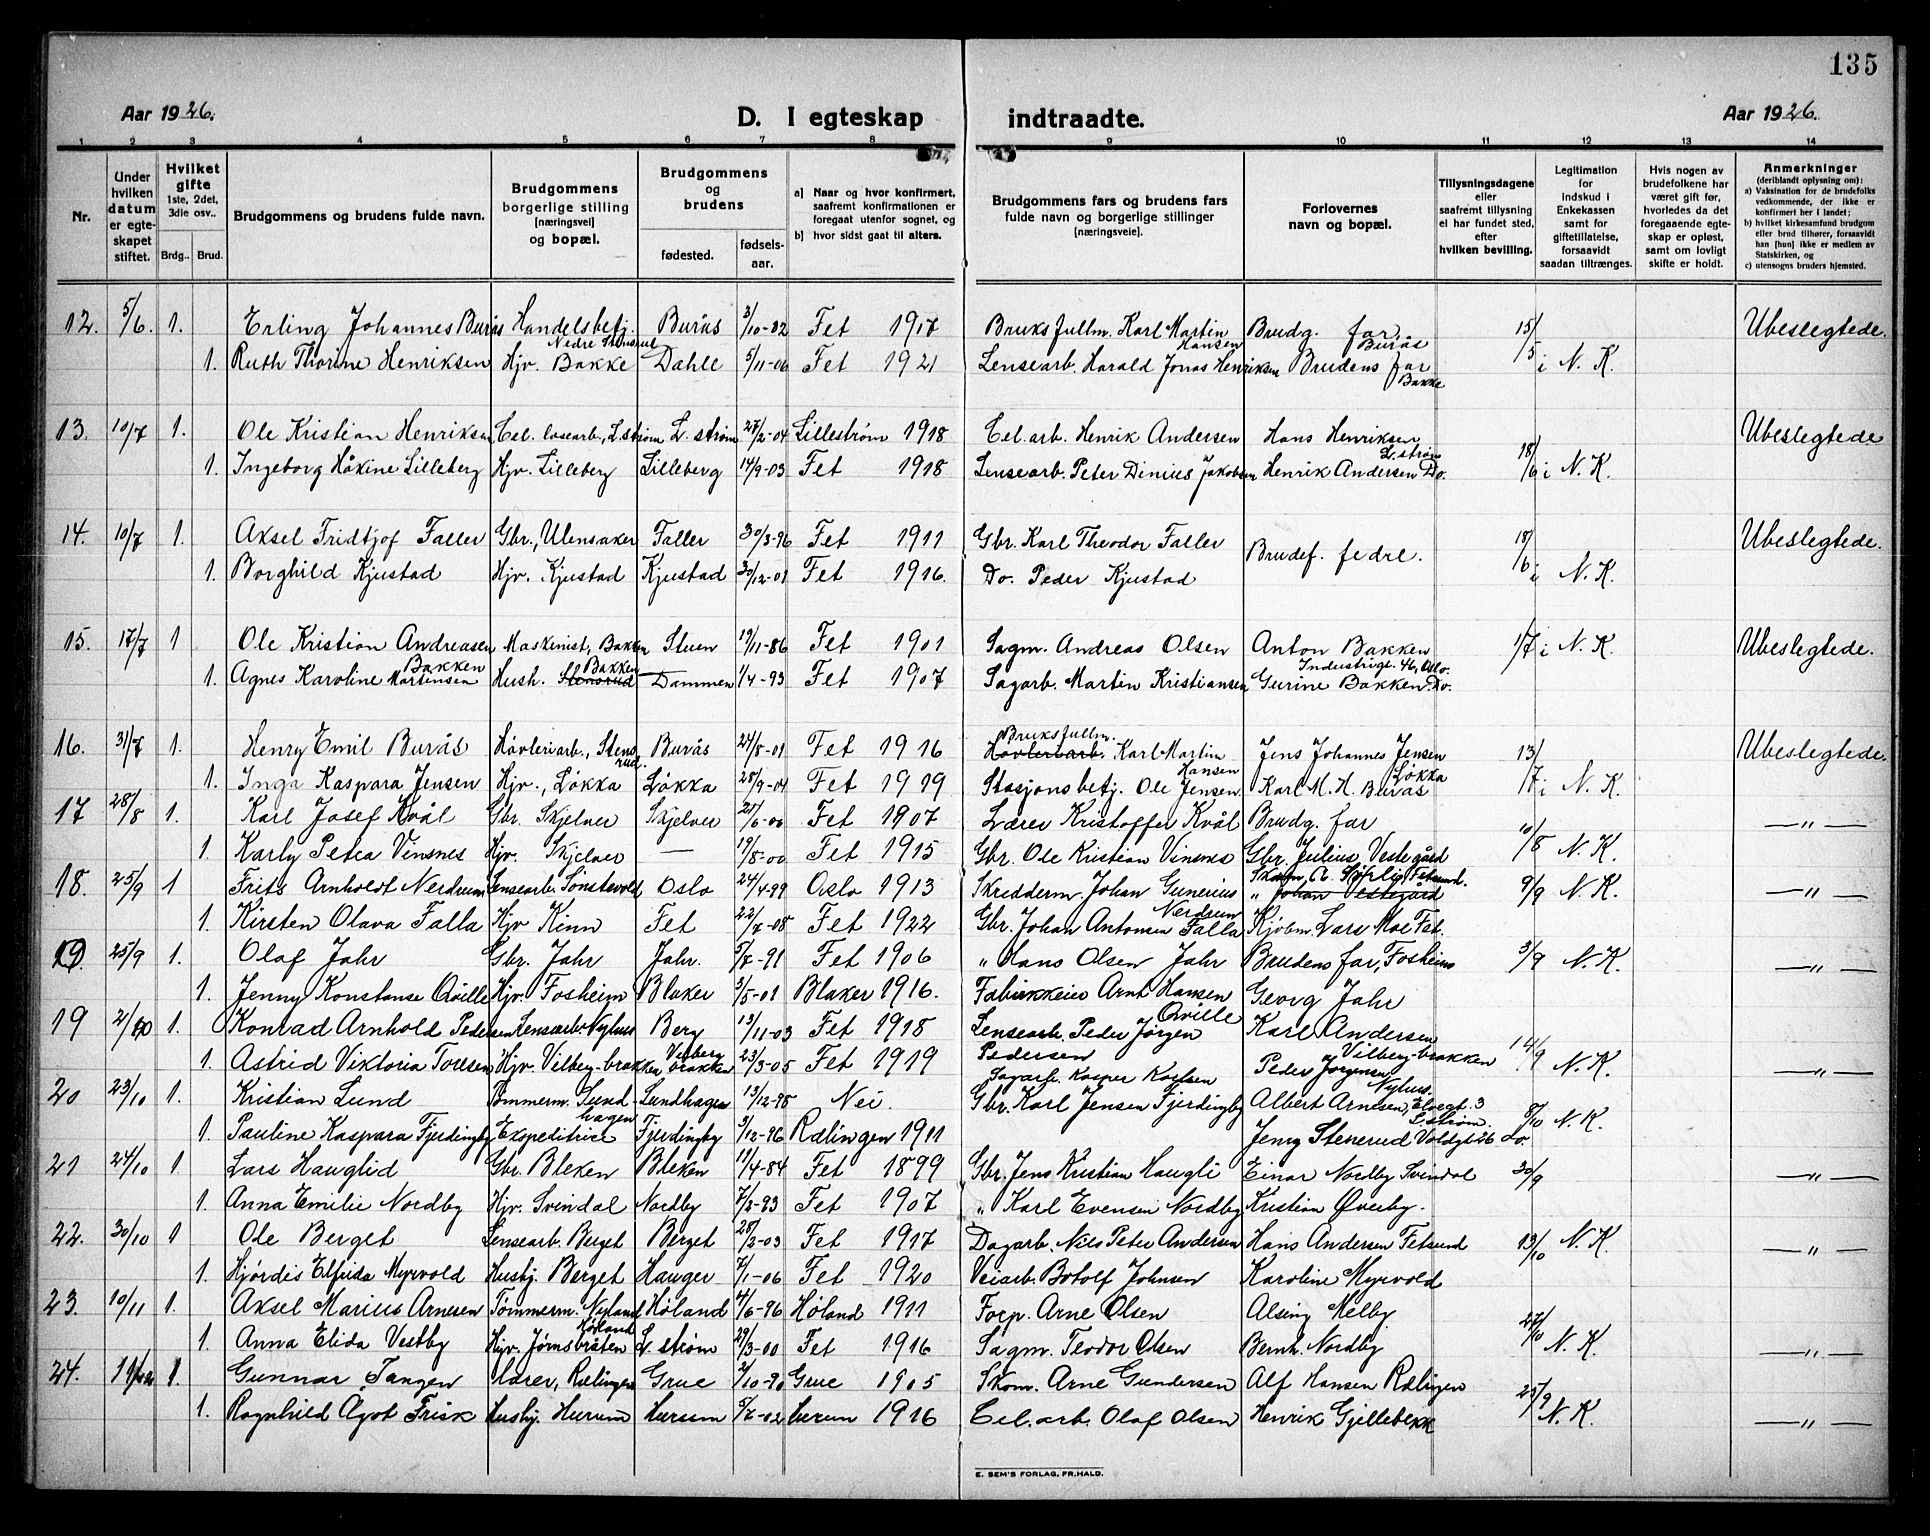 135
Aar 1926.
D. I egteskap indtraadte.
Aar 1926.
1 2 3 4 5 6 7 8 9 10 11 12 13 14
Nr.
Under hvilken datum er egte-skapet stiftet.
Hvilket gifte 1ste, 2det, 3die osv..
Brdg.. Brud.
Brudgommens og brudens fulde navn.
Brudgommens borgerlige stilling [næringsvei] og bopæl.
Brudgommens og brudens
fødested.
fødsels-aar.
a) Naar og hvor konfirmert, saafremt konfirmationen er foregaat utenfor sognet, og
b) hvor sidst gaat til alters.
Brudgommens fars og brudens fars fulde navn og borgerlige stillinger [næringsveie].
Forlovernes navn og bopæl.
Tillysningsdagene eller saafremt tillysning ei har fundet sted, efter hvilken bevilling.
Legitimation for Indskud i Enkekassen samt for giftetillatelse, forsaavidt saadan tiltrænges.
Hvis nogen av brudefolkene har været gift før, hvorledes da det foregaaende egte-skap er opløst, samt om lovligt skifte er holdt.
Anmerkninger (deriblandt oplysning om): a) Vaksination for de brudefolks vedkommende, der ikke er konfirmert her i landet; b) hvilket kirkesamfund brudgom eller brud tilhører, forsaavidt han [hun] ikke er medlem av Statskirken, og c) utensogns bruders hjemsted.
12. 5/6. 1. Erling Johannes Burås Handelsbetj. Nedre Stensrud Burås 3/10-02 Fet 1917 Bruksfullm. Karl Martin Hansen Brudg. far Burås 15/5 i N. K. Ubeslegtede.
1. Ruth Thorine Henriksen Hjv. Bakke Dahle 5/11-06 Fet 1921 Lensearb. Harald Jonas Henriksen Brudens far Bakke
13. 10/7 1. Ole Kristian Henriksen Cel. losearb., L.strøm L. strøm 27/2-04 Lillestrøm 1918 Cel. arb. Henrik Andersen Hans Henriksen L. strøm 18/6 i N. K. Ubeslegtede
1. Ingeborg Håkine Lilleberg Hjv. Lilleberg Lilleberg 14/9-03 Fet 1918 Lensearb. Peter Dinius Jakobsen Henrik Andersen Do.
14. 10/7 1. Aksel Fridtjof Faller Gbr., Ulensaker Faller 30/3-96 Fet 1911 Gbr. Karl Theodor Faller Brudef. fedre. 18/6 i N. K. Ubeslegtede.
1. Borghild Kjustad Hjv. Kjustad Kjustad 30/12-01 Fet 1916. Do. Peder Kjustad
15. 17/7 1 Ole Kristian Andreasen Bakken Maskinist, Bakken Stuen 19/11-86 Fet 1901 Sagm. Andreas Olsen Anton Bakken Industrigt. 46, Oslo. 1/7 i N. K. Ubeslegtede.
1. Agnes Karoline Martinsen Hush. Stensrud Bakken Dammen 1/4-93 Fet 1907 Sagarb. Martin Kristiansen Gurine Bakken. Do.
16. 31/7 1. Henry Emil Burås Høvleriarb., Stensrud. Burås 24/8-01 Fet 1916 Høvleriarb. Bruksfullm. Karl Martin Hansen Jens Johannes Jensen Løkka 13/7 i N. K. Ubeslegtede.
1. Inga Kaspara Jensen Hjv., Løkka Løkka 28/9-04 Fet 1919 Stasjonsbetj. Ole Jensen Karl M. H. Burås
17 28/8 1. Karl Josef Kvål Gbr. Skjelver Skjelver Fet 1907 Lærer Kristoffer Kvål Brudg. far 10/8 N. K. — " —
1. Karly Petra Vinsnes Hjv. Skjelver — 19/8-00 Fet 1915 Gbr. Ole Kristian Vinsnes Gbr. Julius Vestegård
18. 25/9 1 Frits Arnholdt Nerdrum Lensearb. Sønstevold Oslo 24/4-99 Oslo 1913 Skredderm. Johan Gunerius Nerdrum Fetsund. " Johan Vestegård 9/9 N. K. — " —
1. Kirsten Olava Falla Hjv Kinn Fet 22/7-08 Fet 1922 Gbr. Johan Antonsen Falla Kjøbm. Lars Moe Fet.
19. 25/9 1. Olaf Jahr Gbr. Jahr Jahr. 5/7-91 Fet 1906 " Hans Olsen Jahr Brudens far, Fosheim 3/9 N. K. — " —
1. Jenny Konstanse Qville Hjv. Fosheim Blaker 3/5-01 Blaker 1916. Fabrikkeier Arnt Hansen Qville Georg Jahr
19 2/10 1. Konrad Arnhold Pedersen Lensearb. Nyhus Berg 13/11-03 Fet 1918 Lensearb. Peder Jørgen Pedersen Karl Andersen Vilberg-brakken 14/9 N. K. — " —
1. Astrid Viktoria Toresen Hjv. Vilberg-brakken Vilberg brakken 23/3-05 Fet 1919 Sagarb. Kasper Karlsen Peder Jørgensen Nyhus.
20 23/10 1. Kristian Lund Tømmerm. Lundhagen Lundhagen 13/12-98 Nei. Gbr. Karl Jensen Fjerdingby Albert Arnesen, Elvegt. 3 L.strøm. 8/10 N. K.
1. Pauline Kaspara Fjerdingby Ekspeditrice Fjerdingby 3/12-96 Rælingen 1911 Jenny Stenerud Voldgt. 26 Do.
21 24/10 1. Lars Hauglid Gbr. Bleken Bleken 19/4-84 Fet 1899 Gbr. Jens Kristian Haugli Einar Nordby Svindal 30/9 — " —
1. Anna Emilie Nordby Hjv. Svindal Nordby 7/2-93 Fet 1907 " Karl Evensen Nordby Kristian Øverby.
22. 30/10 1 Ole Berget Lensearb. Berget Berget 28/2-03 Fet 1917 Dagarb. Nils Peter Andersen Hans Andersen Fetsund 13/10 N. K. — " —
1. Hjørdis Elfrida Myrvold Husbj. Berget Hauger 7/1-06 Fet 1920 Veiarb. Botolf Johnsen Karoline Myrvold
23. 10/11 1. Aksel Marius Arnesen Tømmerm. Nyland Høland Høland 4/6-96 Høland 1911 Forp. Arne Olsen Alsing Melby 27/10 N. K. — " —
1. Anna Elida Vestby Hjv. Jørnsbråten L. strøm 29/3-00 Fet 1916 Sagm. Teodor Olsen Bernh. Nordby
24. 1. Gunnar Tangen Lærer, Rælingen Grue 2/10-90 Grue 1905 Skom. Arne Gundersen Alf Hansen Rælingen 25/9 N. K. — " —
1. Ragnhild Ågot Frisk Husbj. Hurum Hurum 5/7-02 Hurum 1916 Cel. arb. Olaf Olsen Henrik Gjellebekk
E. SEM'S FORLAG, FR.HALD.